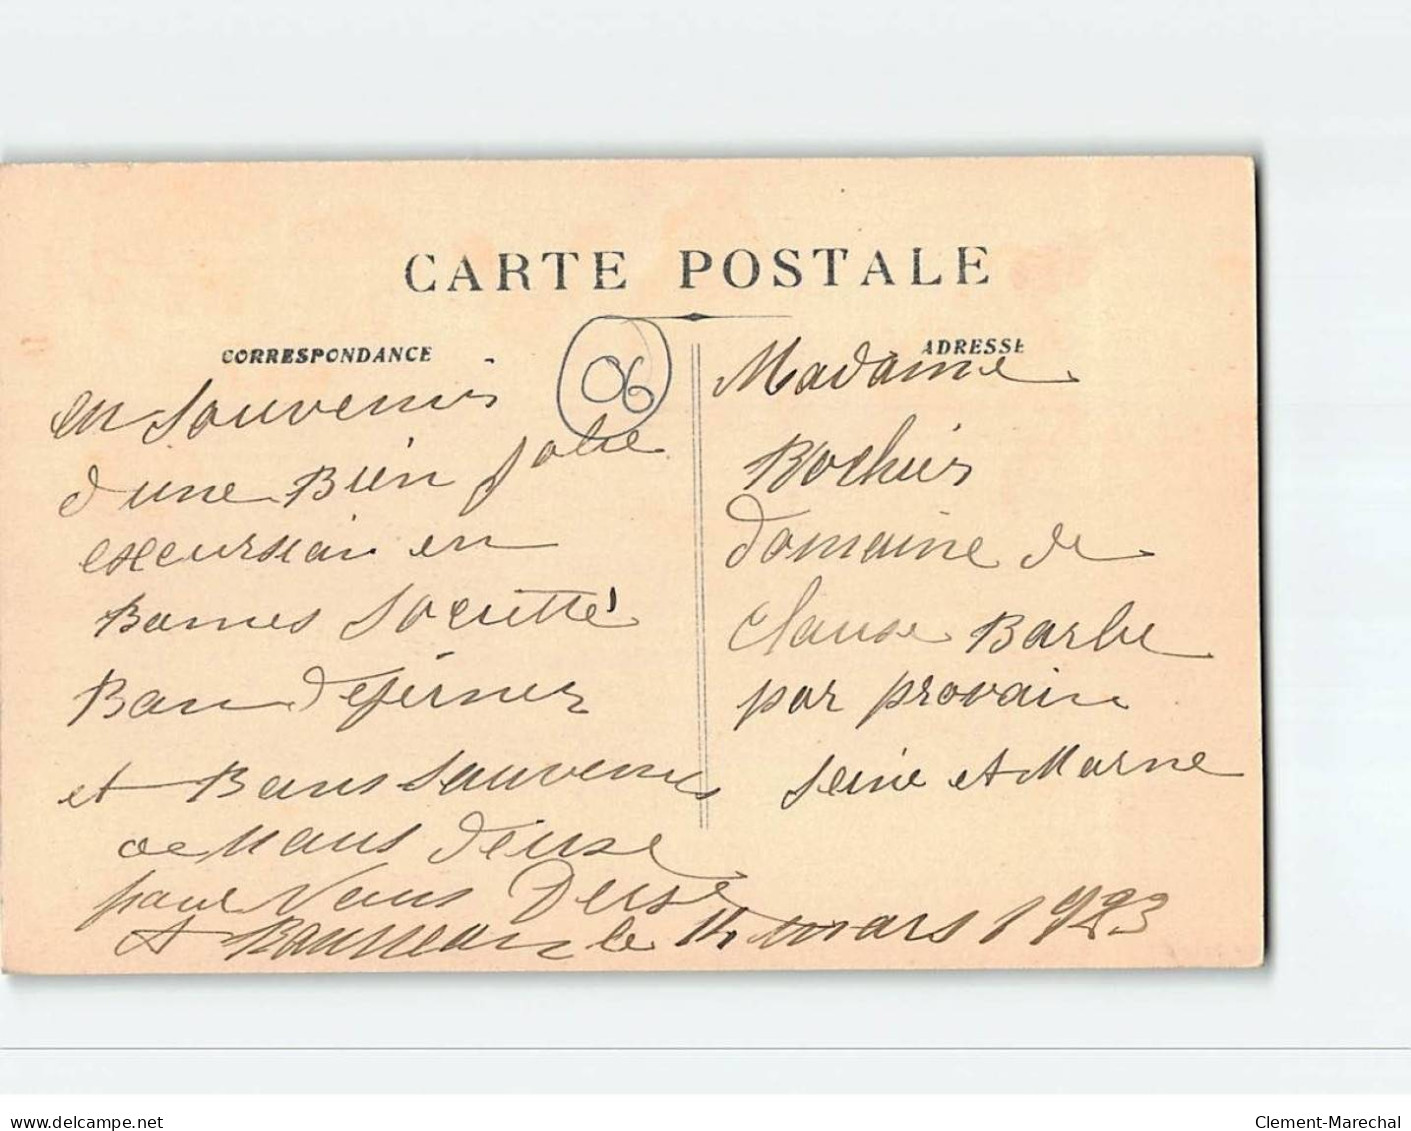 CARTE POSTALE
CORRESPONDANCE
06
en souvenir
d'une Bien Jolie
excursion en
Bonnes Sociétté
Bon déjeuner
et Bons souvenirs
de nous deuse
pour Vous Deise
A le 14 mars 1923
ADRESSE
Madame
Rochier
domaine de
clause Barbe
par provain
seine et Marne
www.delcampe.net
Clement-Marechal